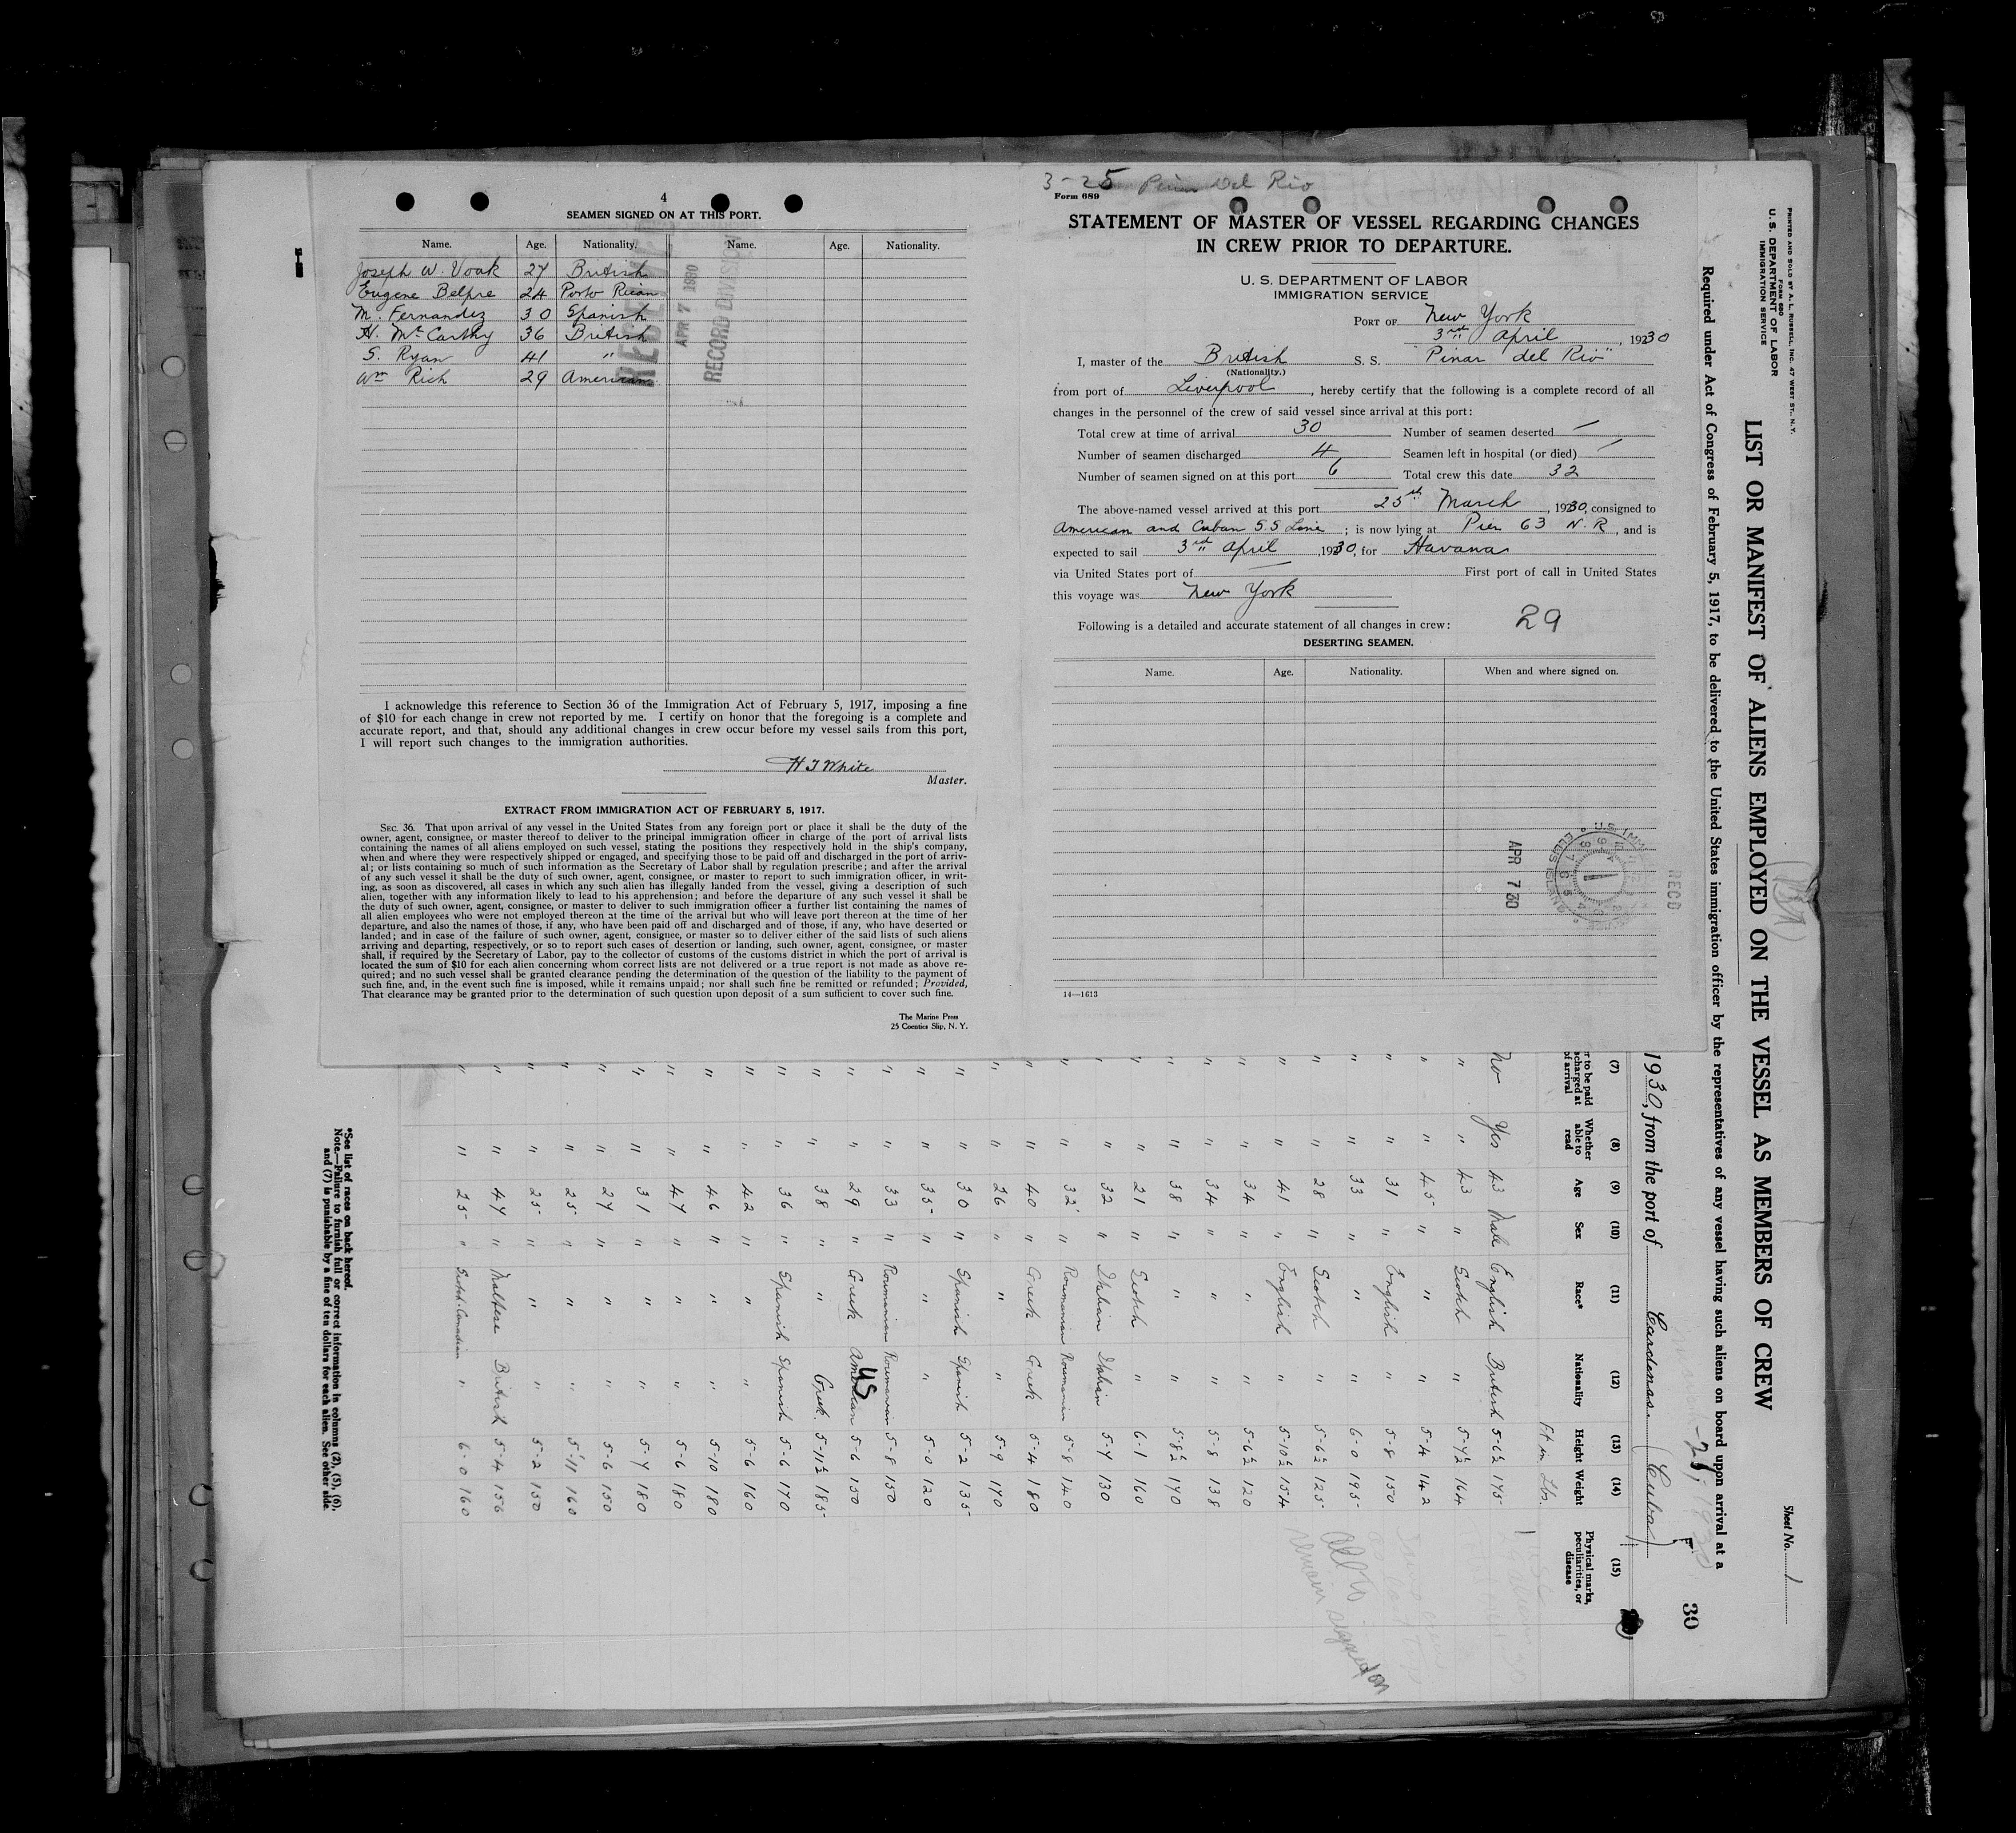 4
SEAMEN SIGNED ON AT THIS PORT.
Name. Age. Nationality. Name. Age. Nationality.
Joseph W. Voak 27 British
Eugene Belpre 24 Porto Rican
M. Fernandez 30 Spanish
H. McCarthy 36 British
S. Ryan 41 "
Wm Rich 29 American
APR 7 1930
RECORD DIVISION
I acknowledge this reference to Section 36 of the Immigration Act of February 5, 1917, imposing a fine
of $10 for each change in crew not reported by me. I certify on honor that the foregoing is a complete and
accurate report, and that, should any additional changes in crew occur before my vessel sails from this port,
I will report such changes to the immigration authorities.
H J White
Master.
EXTRACT FROM IMMIGRATION ACT OF FEBRUARY 5, 1917.
SEC. 36. That upon arrival of any vessel in the United States from any foreign port or place it shall be the duty of the
owner, agent, consignee, or master thereof to deliver to the principal immigration officer in charge of the port of arrival lists
containing the names of all aliens employed on such vessel, stating the positions they respectively hold in the ship's company,
when and where they were respectively shipped or engaged, and specifying those to be paid off and discharged in the port of arriv-
al; or lists containing so much of such information as the Secretary of Labor shall by regulation prescribe; and after the arrival
of any such vessel it shall be the duty of such owner, agent, consignee, or master to report to such immigration officer, in writ-
ing, as soon as discovered, all cases in which any such alien has illegally landed from the vessel, giving a description of such
alien, together with any information likely to lead to his apprehension; and before the departure of any such vessel it shall be
the duty of such owner, agent, consignee, or master to deliver to such immigration officer a further list containing the names of
all alien employees who were not employed thereon at the time of the arrival but who will leave port thereon at the time of her
departure, and also the names of those, if any, who have been paid off and discharged and of those, if any, who have deserted or
landed; and in case of the failure of such owner, agent, consignee, or master so to deliver either of the said lists of such aliens
arriving and departing, respectively, or so to report such cases of desertion or landing, such owner, agent, consignee, or master
shall, if required by the Secretary of Labor, pay to the collector of customs of the customs district in which the port of arrival is
located the sum of $10 for each alien concerning whom correct lists are not delivered or a true report is not made as above re-
quired; and no such vessel shall be granted clearance pending the determination of the question of the liability to the payment of
such fine, and, in the event such fine is imposed, while it remains unpaid; nor shall such fine be remitted or refunded; Provided,
That clearance may be granted prior to the determination of such question upon deposit of a sum sufficient to cover such fine.
The Marine Press
25 Coenties Slip, N. Y.
3-25 Pinar Del Rio
Form 689
STATEMENT OF MASTER OF VESSEL REGARDING CHANGES
IN CREW PRIOR TO DEPARTURE.
U. S. DEPARTMENT OF LABOR
IMMIGRATION SERVICE
PORT OF New York
3rd April, 1930
I, master of the British S. S. "Pinar del Rio"
(Nationality.)
from port of Liverpool, hereby certify that the following is a complete record of all
changes in the personnel of the crew of said vessel since arrival at this port:
Total crew at time of arrival 30 Number of seamen deserted /
Number of seamen discharged 4 Seamen left in hospital (or died) /
Number of seamen signed on at this port 6 Total crew this date 32
The above-named vessel arrived at this port 25th March, 1930, consigned to
American and Cuban S.S Line; is now lying at Pier 63 N.R, and is
expected to sail 3rd April, 1930, for Havana
via United States port of — First port of call in United States
this voyage was New York
Following is a detailed and accurate statement of all changes in crew: 29
DESERTING SEAMEN.
Name. Age. Nationality. When and where signed on.
APR 7 30
REC'D
14—1613
PRINTED AND SOLD BY A. L. RUSSELL, INC. 47 WEST ST., N.Y.
FORM 680
U. S. DEPARTMENT OF LABOR
IMMIGRATION SERVICE
Sheet No. 1
LIST OR MANIFEST OF ALIENS EMPLOYED ON THE VESSEL AS MEMBERS OF CREW
30
Required under Act of Congress of February 5, 1917, to be delivered to the United States immigration officer by the representatives of any vessel having such aliens on board upon arrival at a
1930, from the port of Cardenas. (Cuba)
(7) (8) (9) (10) (11) (12) (13) (14) (15)
r to be paid charged at of arrival Whether able to read Age Sex Race* Nationality Height Weight Physical marks, peculiarities, or disease
Ft in. Lbs.
No Yes 43 Male English British 5-6½ 175
" " 43 " Scotch " 5-7½ 164
" " 45 " " " 5-4 142
" " 31 " English " 5-8 150
" " 33 " " " 6-0 195
" " 28 " Scotch " 5-6½ 125
" " 41 " English " 5-10½ 154
" " 34 " " " 5-6½ 120
" " 34 " " " 5-8 138
" " 38 " " " 5-8½ 170
" " 21 " Scotch " 6-1 160
" " 32 " Italian Italian 5-7 130
" " 32 " Roumanian Roumanian 5-8 140
" " 40 " Greek Greek 5-4 180
" " 26 " " " 5-9 170
" " 30 " Spanish Spanish 5-2 135
" " 35 " " " 5-0 120
" " 33 " Roumanian Roumanian 5-8 150
" " 29 " Greek American US 5-6 150
" " 38 " " Greek 5-11½ 185
" " 36 " Spanish Spanish 5-6 170
" " 42 " " " 5-6 160
" " 46 " " " 5-10 180
" " 47 " " " 5-6 180
" " 31 " " " 5-7 180
" " 27 " " " 5-6 150
" " 25 " " " 5-11 160
" " 25 " " " 5-2 150
" " 47 " Maltese British 5-4 156
" " 25 " Scotch-Canadian " 6-0 160
All to
remain signed on
*See list of races on back hereof.
Note.—Failure to furnish full or correct information in columns (2), (5), (6),
and (7) is punishable by a fine of ten dollars for each alien. See other side.